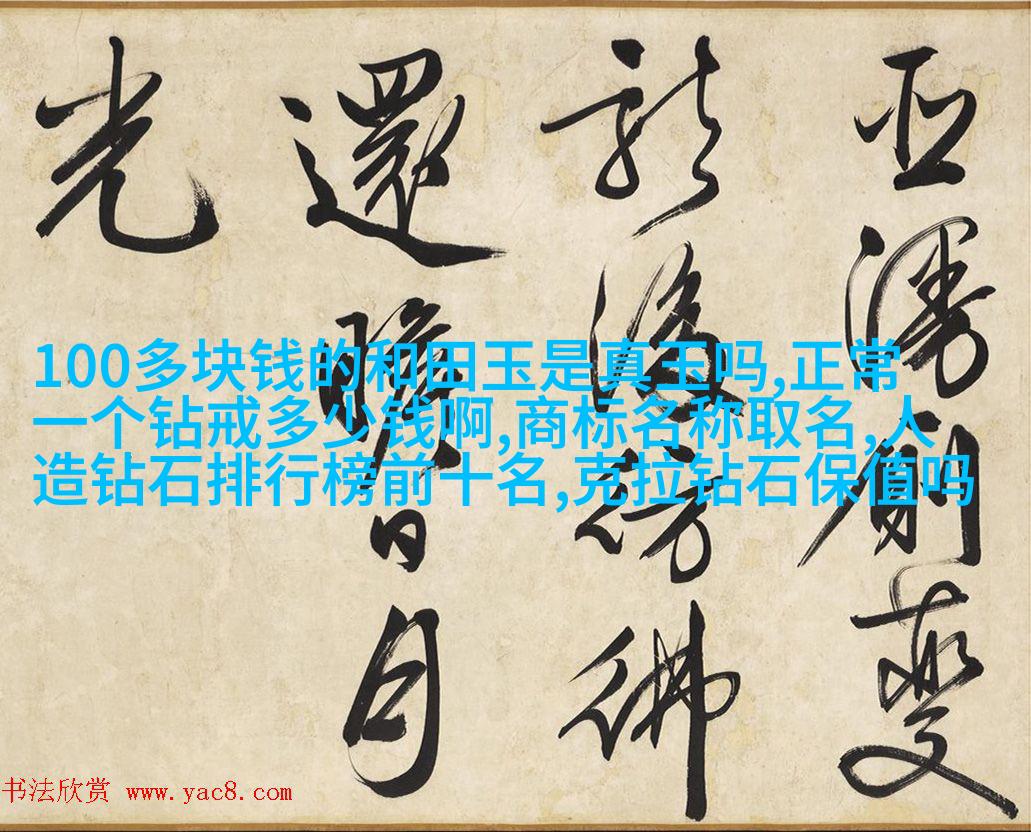 變
彷彿
還瞻日月
光
100多块钱的和田玉是真玉吗,正常
一个钻戒多少钱啊,商标名称取名,人
造钻石排行榜前十名,克拉钻石保值吗
书法欣赏 www.yac8.com